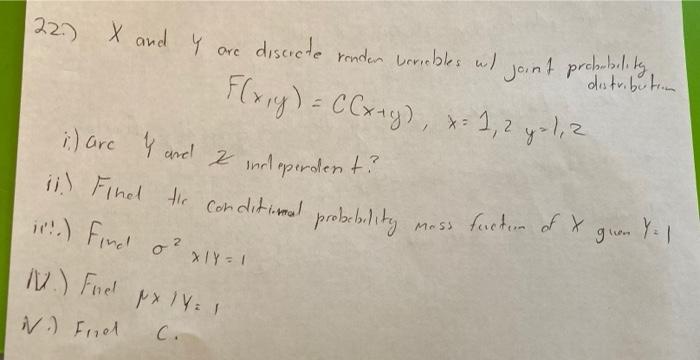 22.) X and Y are discrete random variables w/ joint probability
distribution
F(x,y) = C(x+y), x= 1,2 y=1,2
i.) are Y and Z independent?
ii.) Find the conditional probability mass function of X given Y=1
iii.) Find σ² X|Y=1
IV.) Find μx|Y=1
V.) Find C.